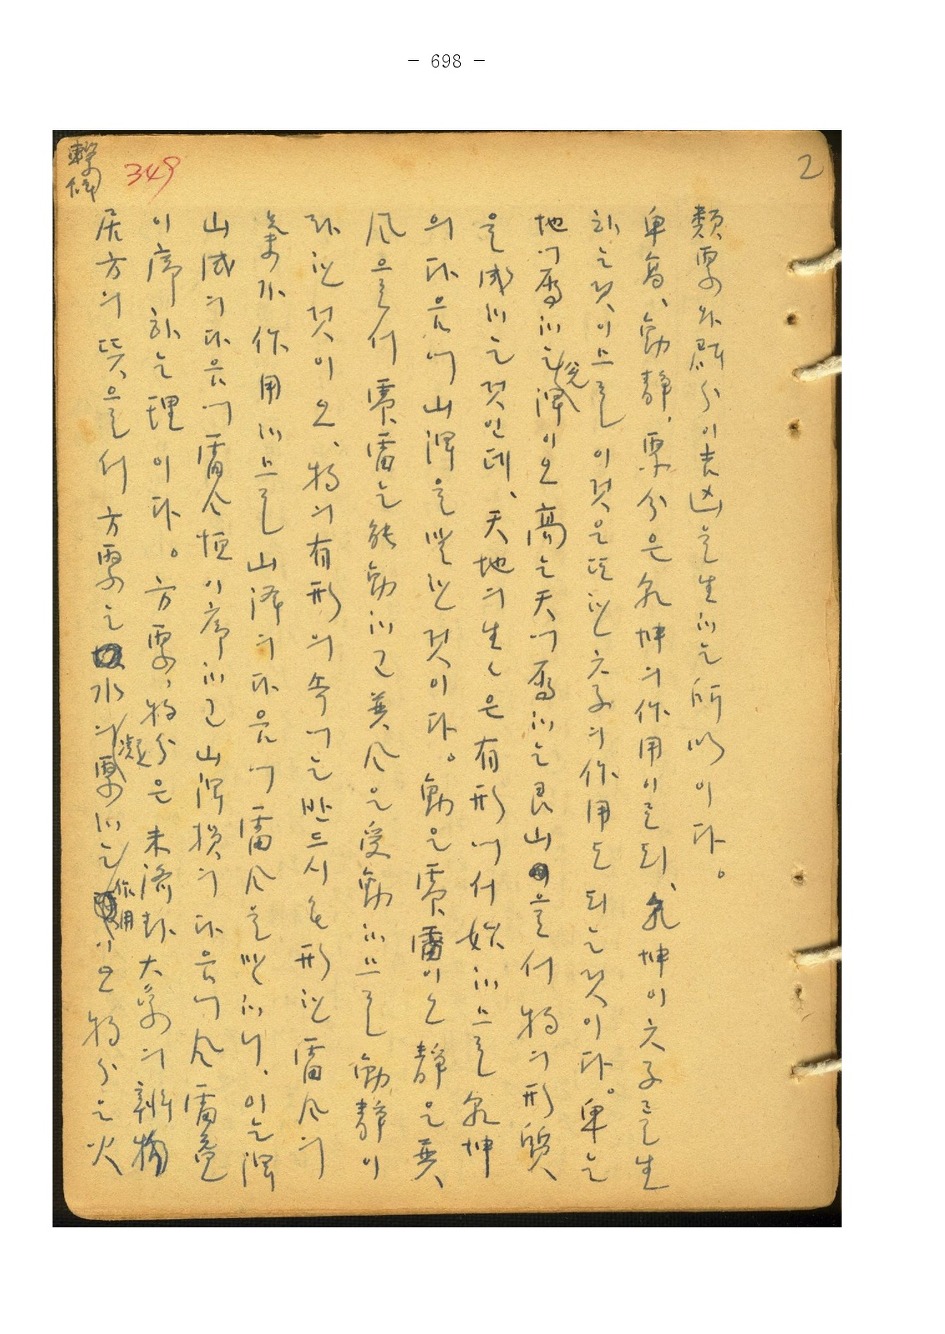 - 698 -
繫傳
349
2
類聚와 群分이 吉凶을 生하는 所以이다。
卑高、動靜、聚分은 乾坤의 作用이로되、乾坤이 六子를 生
하는 것이므로 이것은 또한 六子의 作用도 되는 것이다。卑는
地에 屬하는 澤이오 高는 天에 屬하는 艮山을 서 物의 形質
을 成하는 것인데、天地의 生은 有形에서 始하므로 乾坤
의 다음에 山澤을 말한 것이다。動은 震雷이오 靜은 巽
風으로서 震雷는 能動하고 巽風은 受動하므로 動靜이
라 한 것이오、物의 有形의 속에는 반드시 無形한 雷風의
氣가 作用하므로 山澤의 다음에 雷風을 말하니、이는 澤
山咸의 다음에 雷風恒이 序하고 山澤損의 다음에 風雷益
이 序하는 理이다。方聚、物分은 未濟卦 大象의 辨物
居方의 뜻으로서 方聚는 水의 凝聚하는 作用이오 物分은 火